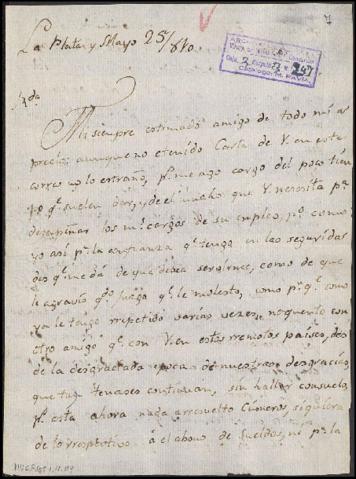 La Plata y Mayo 25/810.
7
Mi siempre estimado amigo de todo mi a-
precio: aunque no e tenido Carta de V. en este
correo no lo estraño, pr. me ago cargo del poco tiem
po qe. suelen dar, y de el mucho que V. necesita pa.
desempeñar los mi cargos de su empleo, po. como
yo asi pr. la confianza qe. tengo en las segurida
des qe. me dá de que desea servirme, como de que
le agravio qdo. juzga qe. le molesto, como pr. qe. como
ya le tengo repetido varias veces, no cuento con
otro amigo qe. con V. en estos remotos paises, des
de la desgraciada epoca de nuestras desgracias
que tan tenaces continuan, sin hallar consuelo,
pr. esta ahora nada
de lo respectivo á el abono de sueldos, ni pr. la